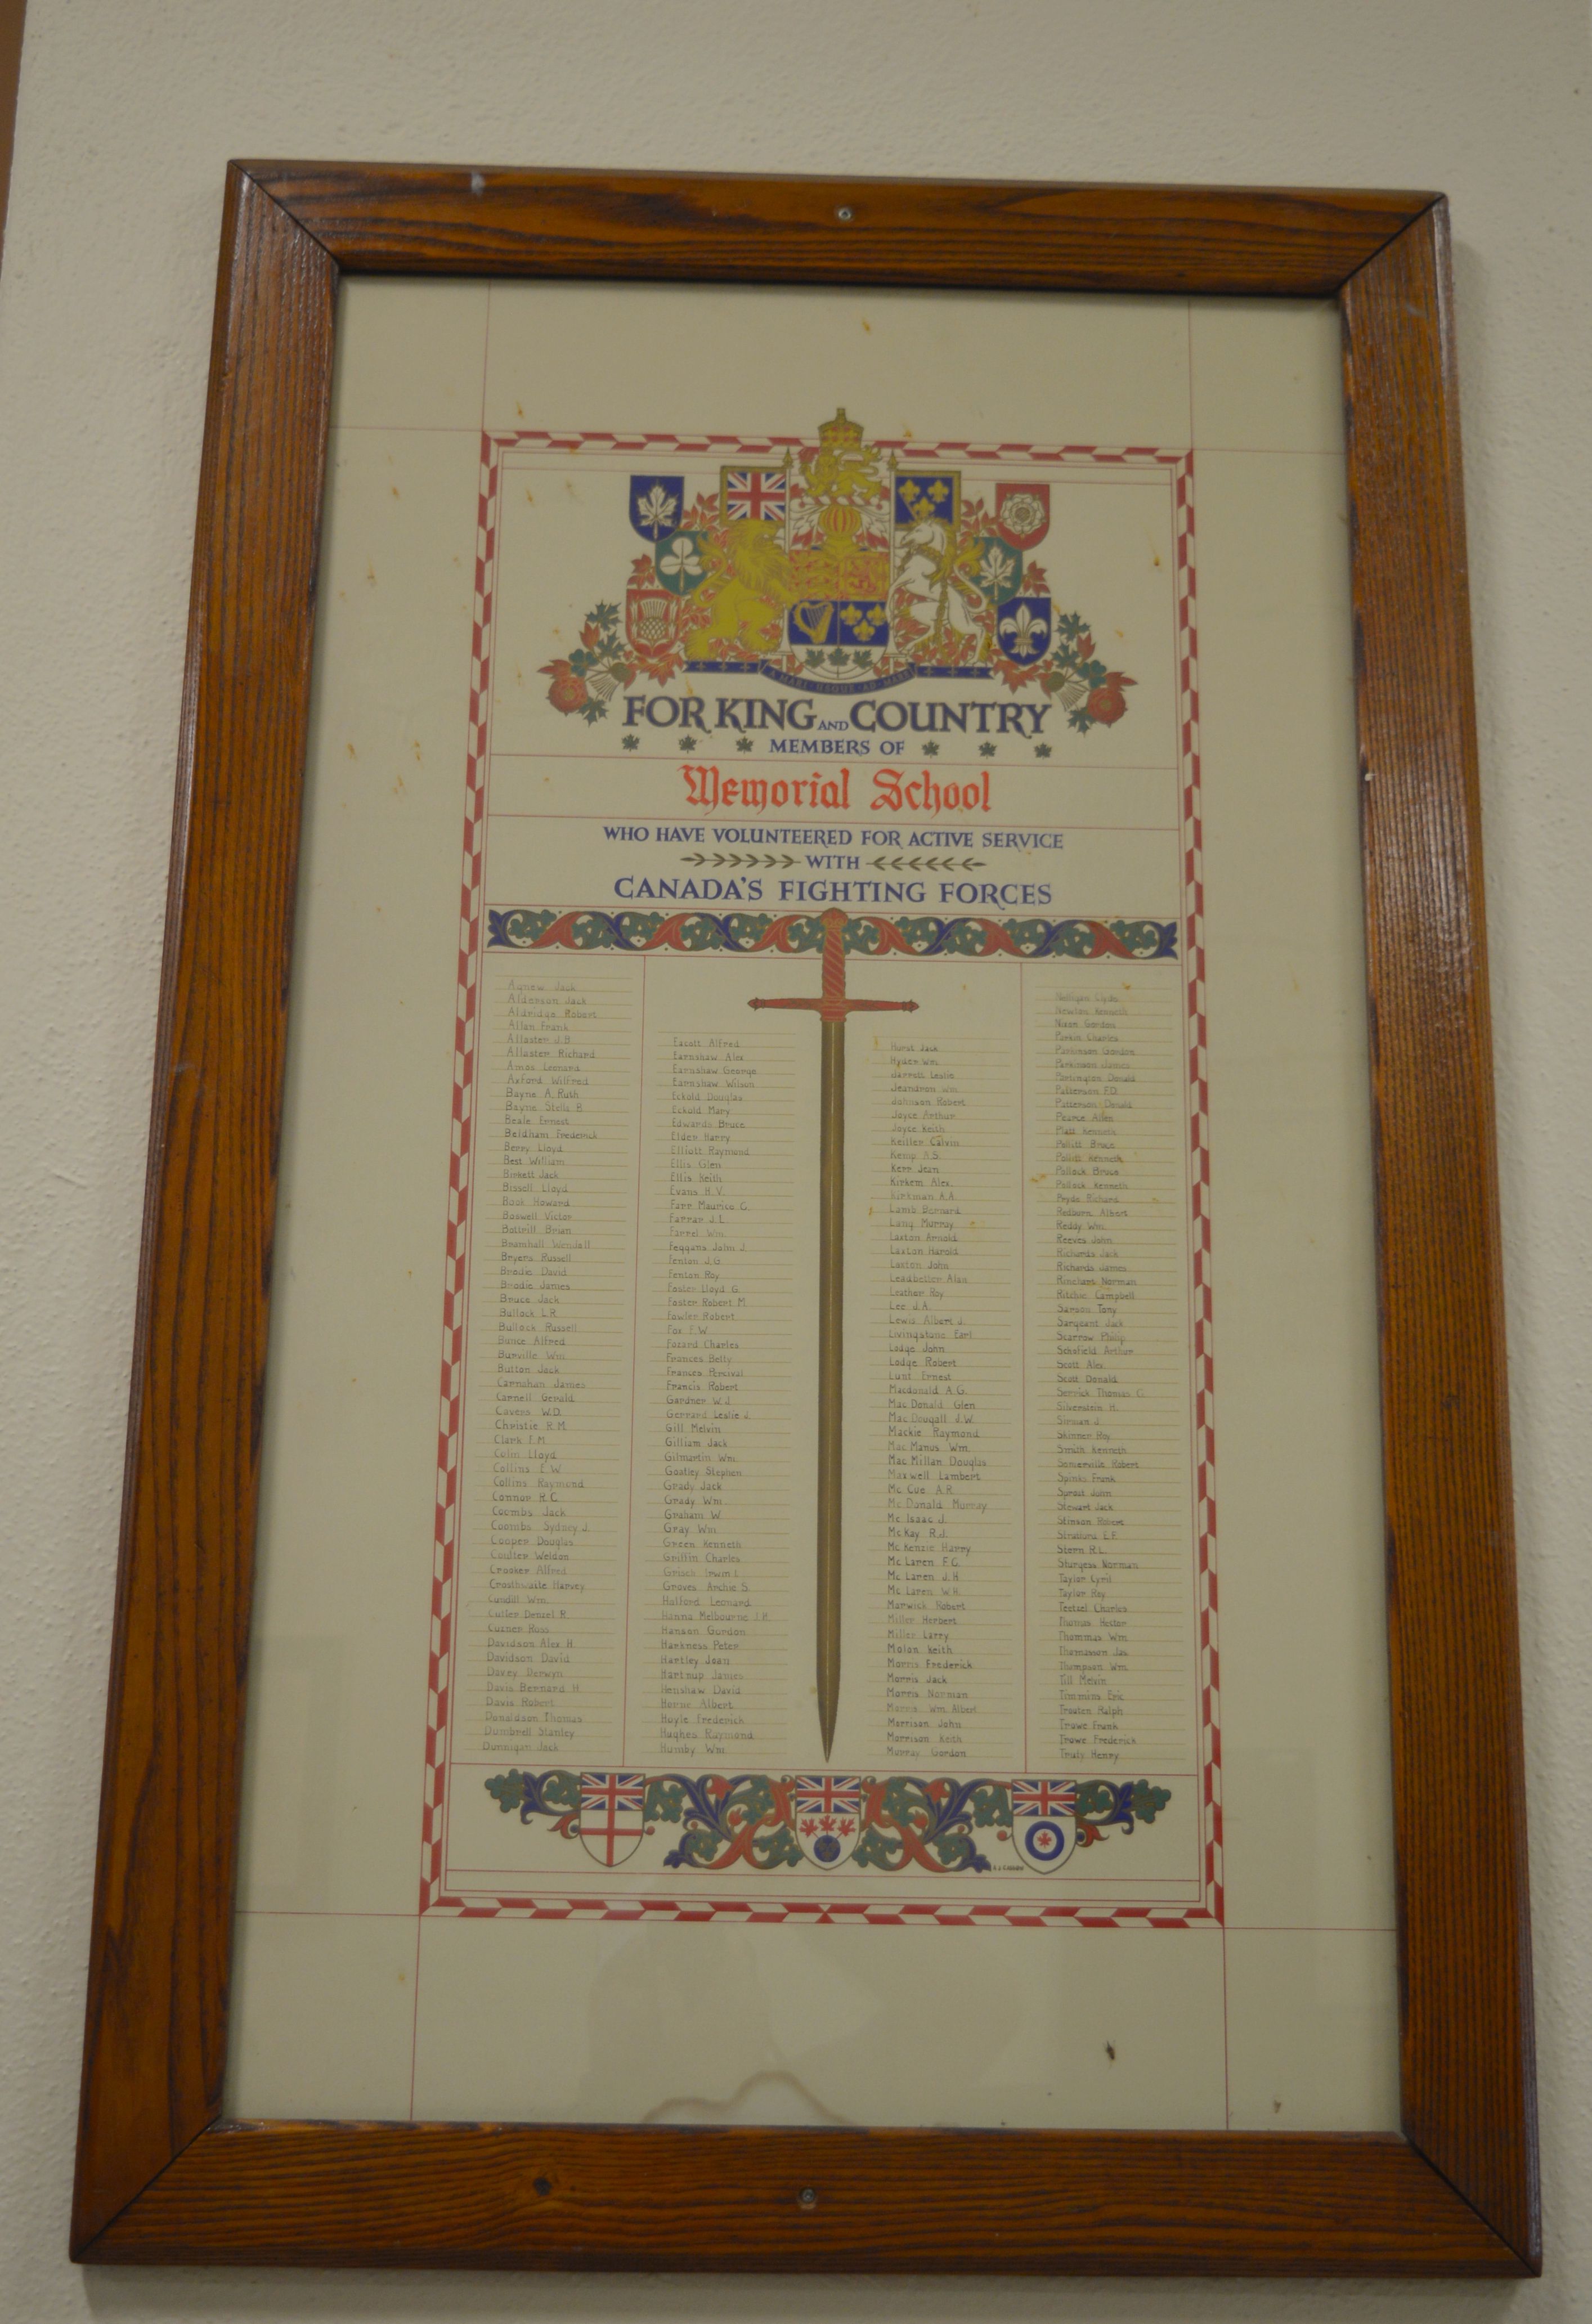 A MARI USQUE AD MARE
FOR KING AND COUNTRY
MEMBERS OF
Memorial School
WHO HAVE VOLUNTEERED FOR ACTIVE SERVICE
WITH
CANADA'S FIGHTING FORCES
Agnew Jack
Alderson Jack
Aldridge Robert
Allan Frank
Allaster J.B.
Allaster Richard
Amos Leonard
Axford Wilfred
Bayne A. Ruth
Bayne Stella B.
Beale Ernest
Beldham Frederick
Berry Lloyd
Best William
Birkett Jack
Bissell Lloyd
Book Howard
Boswell Victor
Bottrill Brian
Bramhall Wendall
Bryers Russell
Brodie David
Brodie James
Bruce Jack
Bullock L.R.
Bullock Russell
Bunce Alfred
Burville Wm.
Button Jack
Carnahan James
Carnell Gerald
Cavers W.D.
Christie R.M.
Clark F.M.
Colm Lloyd
Collins E.W.
Collins Raymond
Connor R.C.
Coombs Jack
Coombs Sydney J.
Cooper Douglas
Coulter Weldon
Crooker Alfred
Crosthwaite Harvey
Cundill Wm.
Cutler Denzel R.
Cuzner Ross
Davidson Alex H.
Davidson David
Davey Derwyn
Davis Bernard H.
Davis Robert
Donaldson Thomas
Dumbrell Stanley
Dunnigan Jack
Eacott Alfred
Earnshaw Alex
Earnshaw George
Earnshaw Wilson
Eckold Douglas
Eckold Mary
Edwards Bruce
Elder Harry
Elliott Raymond
Ellis Glen
Ellis Keith
Evans H.V.
Farr Maurice G.
Farrar J.L.
Farrel Wm.
Feggans John J.
Fenton J.G.
Fenton Roy
Foster Lloyd G.
Foster Robert M.
Fowler Robert
Fox F.W.
Fozard Charles
Frances Betty
Frances Percival
Francis Robert
Gardner W.J.
Gerrard Leslie J.
Gill Melvin
Gilliam Jack
Gilmartin Wm.
Goatley Stephen
Grady Jack
Grady Wm.
Graham W.
Gray Wm.
Green Kenneth
Griffin Charles
Grisch Irwin L.
Groves Archie S.
Halford Leonard
Hanna Melbourne J.H.
Hanson Gordon
Harkness Peter
Hartley Jean
Hartnup James
Henshaw David
Horne Albert
Hoyle Frederick
Hughes Raymond
Humby Wm.
Hurst Jack
Hyder Wm.
Jarrett Leslie
Jeandron Wm.
Johnson Robert
Joyce Arthur
Joyce Keith
Keiller Calvin
Kemp A.S.
Kerr Jean
Kirkem Alex.
Kirkman A.A.
Lamb Bernard
Lang Murray
Laxton Arnold
Laxton Harold
Laxton John
Leadbetter Alan
Leather Roy
Lee J.A.
Lewis Albert J.
Livingstone Earl
Lodge John
Lodge Robert
Lunt Ernest
Macdonald A.G.
Mac Donald Glen
Mac Dougall J.W.
Mackie Raymond
Mac Manus Wm.
Mac Millan Douglas
Maxwell Lambert
Mc Cue A.R.
Mc Donald Murray
Mc Isaac J.
Mc Kay R.J.
Mc Kenzie Harry
Mc Laren F.C.
Mc Laren J.H.
Mc Laren W.R.
Marwick Robert
Miller Herbert
Miller Larry
Molon Keith
Morris Frederick
Morris Jack
Morris Norman
Morris Wm. Albert
Morrison John
Morrison Keith
Murray Gordon
Nelligan Clyde
Newton Kenneth
Nixon Gordon
Parkin Charles
Parkinson Gordon
Parkinson James
Partington Donald
Patterson F.D.
Patterson Donald
Pearce Allen
Platt Kenneth
Pollitt Bruce
Pollitt Kenneth
Pollock Bruce
Pollock Kenneth
Pryde Richard
Redburn Albert
Reddy Wm.
Reeves John
Richards Jack
Richards James
Rinehart Norman
Ritchie Campbell
Sarson Tony
Sargeant Jack
Scarrow Philip
Schofield Arthur
Scott Alex
Scott Donald
Serrick Thomas C.
Silverstein H.
Sirman J.
Skinner Roy
Smith Kenneth
Somerville Robert
Spinks Frank
Sproat John
Stewart Jack
Stinson Robert
Stratford E.F.
Stern R.L.
Sturgess Norman
Taylor Cyril
Taylor Roy
Teetzel Charles
Thomas Hector
Thommus Wm.
Thomasson Jas.
Thompson Wm.
Till Melvin
Timmins Eric
Trouten Ralph
Truwe Frank
Truwe Frederick
Truly Henry